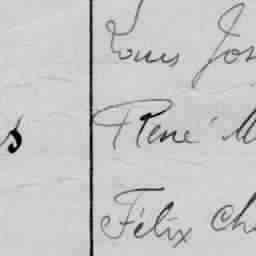 Louis Jos
s René M
Félix Ch